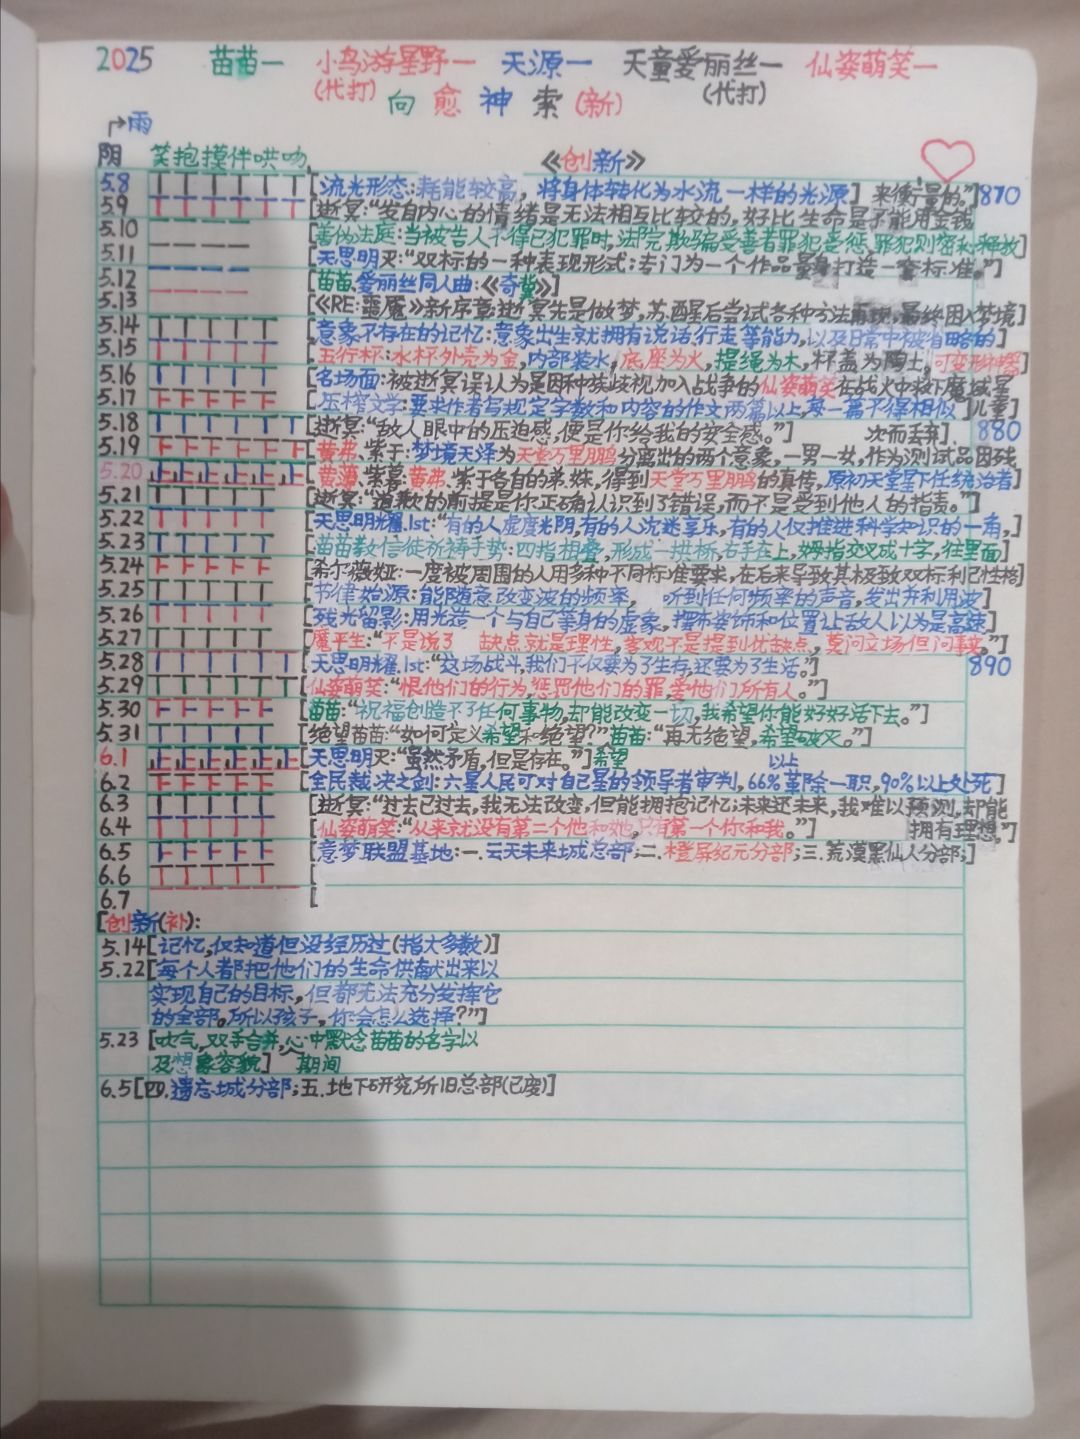 2025 苗苗一 小鸟游星野一 天源一 天童爱丽丝一 仙姿萌笑一
(代打) (代打)
向愈神索(新)
雨
阴 笑抱摸伴哄吻 《创新》
5.8 [流光形态:耗能较高,将身体转化为水流一样的光源] 来衡量的。”] 870
5.9 [逝冥:“发自内心的情绪是无法相互比较的,好比生命是不能用金钱
5.10 [善伪法庭:当被告人不得已犯罪时,法院欺骗受善者罪犯受惩,罪犯则密秘释放]
5.11 [天思明灭:“双标的一种表现形式:专门为一个作品量身打造一套标准。”]
5.12 [苗苗、爱丽丝同人曲:《奇冀》]
5.13 [《RE:噩魇》新序章逝冥先是做梦,苏醒后尝试各种方法,最终困入梦境]
5.14 [意象不存在的记忆:意象出生就拥有说话行走等能力,以及日常中被省略的]
5.15 [五行杯:水杯外壳为金,内部装水,底座为火,提绳为木,杯盖为陶土,可变形神器]
5.16 [名场面:被逝冥误认为是因种族歧视加入战争的仙姿萌笑在战火中救下魔域星
5.17 [压榨文学:要求作者写规定字数和内容的作文两篇以上,每一篇不得相似 儿童]
5.18 [逝冥:“敌人眼中的压迫感,便是你给我的安全感。”] 次而丢弃]. 880
5.19 [黄弗、紫于:梦境天泽为天堂万里鹏分离出的两个意象,一男一女,作为测试品因残
5.20 [黄薄、紫幕:黄弗、紫于各自的弟、妹,得到天堂万里鹏的真传,原初天堂星下任统治者]
5.21 [逝冥:“道歉的前提是你正确认识到了错误,而不是受到他人的指责。”]
5.22 [天思明耀.1st:“有的人虚度光阴,有的人沉迷享乐,有的人仅推进科学知识的一角,]
5.23 [苗苗教信徒祈祷手势:四指相叠,形成一拱桥,右手在上,拇指交叉成十字,往里面]
5.24 [希尔薇娅:一度被周围的人用多种不同标准要求,在后来导致其极致双标利己性格]
5.25 [节律始源:能随意改变波的频率, 听到任何频率的声音,发出并利用波]
5.26 [残光留影:用光造一个与自己等身的虚象,摆布姿饰和位置让敌人以为是高速]
5.27 [魔平生:“不是说了 缺点就是理性,客观不是提到优缺点,莫问立场但问事。”]
5.28 [天思明耀.1st:“这场战斗,我们不仅要为了生存,还要为了生活。”] 890
5.29 [仙姿萌笑:“恨他们的行为,惩罚他们的罪,爱他们所有人。”]
5.30 [苗苗:“祝福创造不了任何事物,却能改变一切,我希望你能好好活下去。”]
5.31 [绝望苗苗:“如何定义希望和绝望?”苗苗:“再无绝望,希望破灭。”]
6.1 [天思明灭:“虽然矛盾,但是存在。”]希望 以上
6.2 [全民裁决之剑:六星人民可对自己星的领导者审判,66%革除一职,90%以上处死]
6.3 [逝冥:“过去已过去,我无法改变,但能拥抱记忆;未来还未来,我难以预测,却能
6.4 [仙姿萌笑:“从来就没有第二个他和她,只有第一个你和我。”] 拥有理想。”]
6.5 [意梦联盟基地:一.云天未来城总部;二.橙屏纪元分部;三.荒漠黑仙人分部;]
6.6 [
6.7 [
[创新(补):
5.14[记忆,仅知道但没经历过(指大多数)]
5.22[每个人都把他们的生命供献出来以
实现自己的目标,但都无法充分发挥它
的全部。所以孩子,你会怎么选择?”]
5.23 [吹气,双手合并,心中默念苗苗的名字以
及想象容貌] 期间
6.5[四.遗忘城分部;五.地下研究所旧总部(已废)]